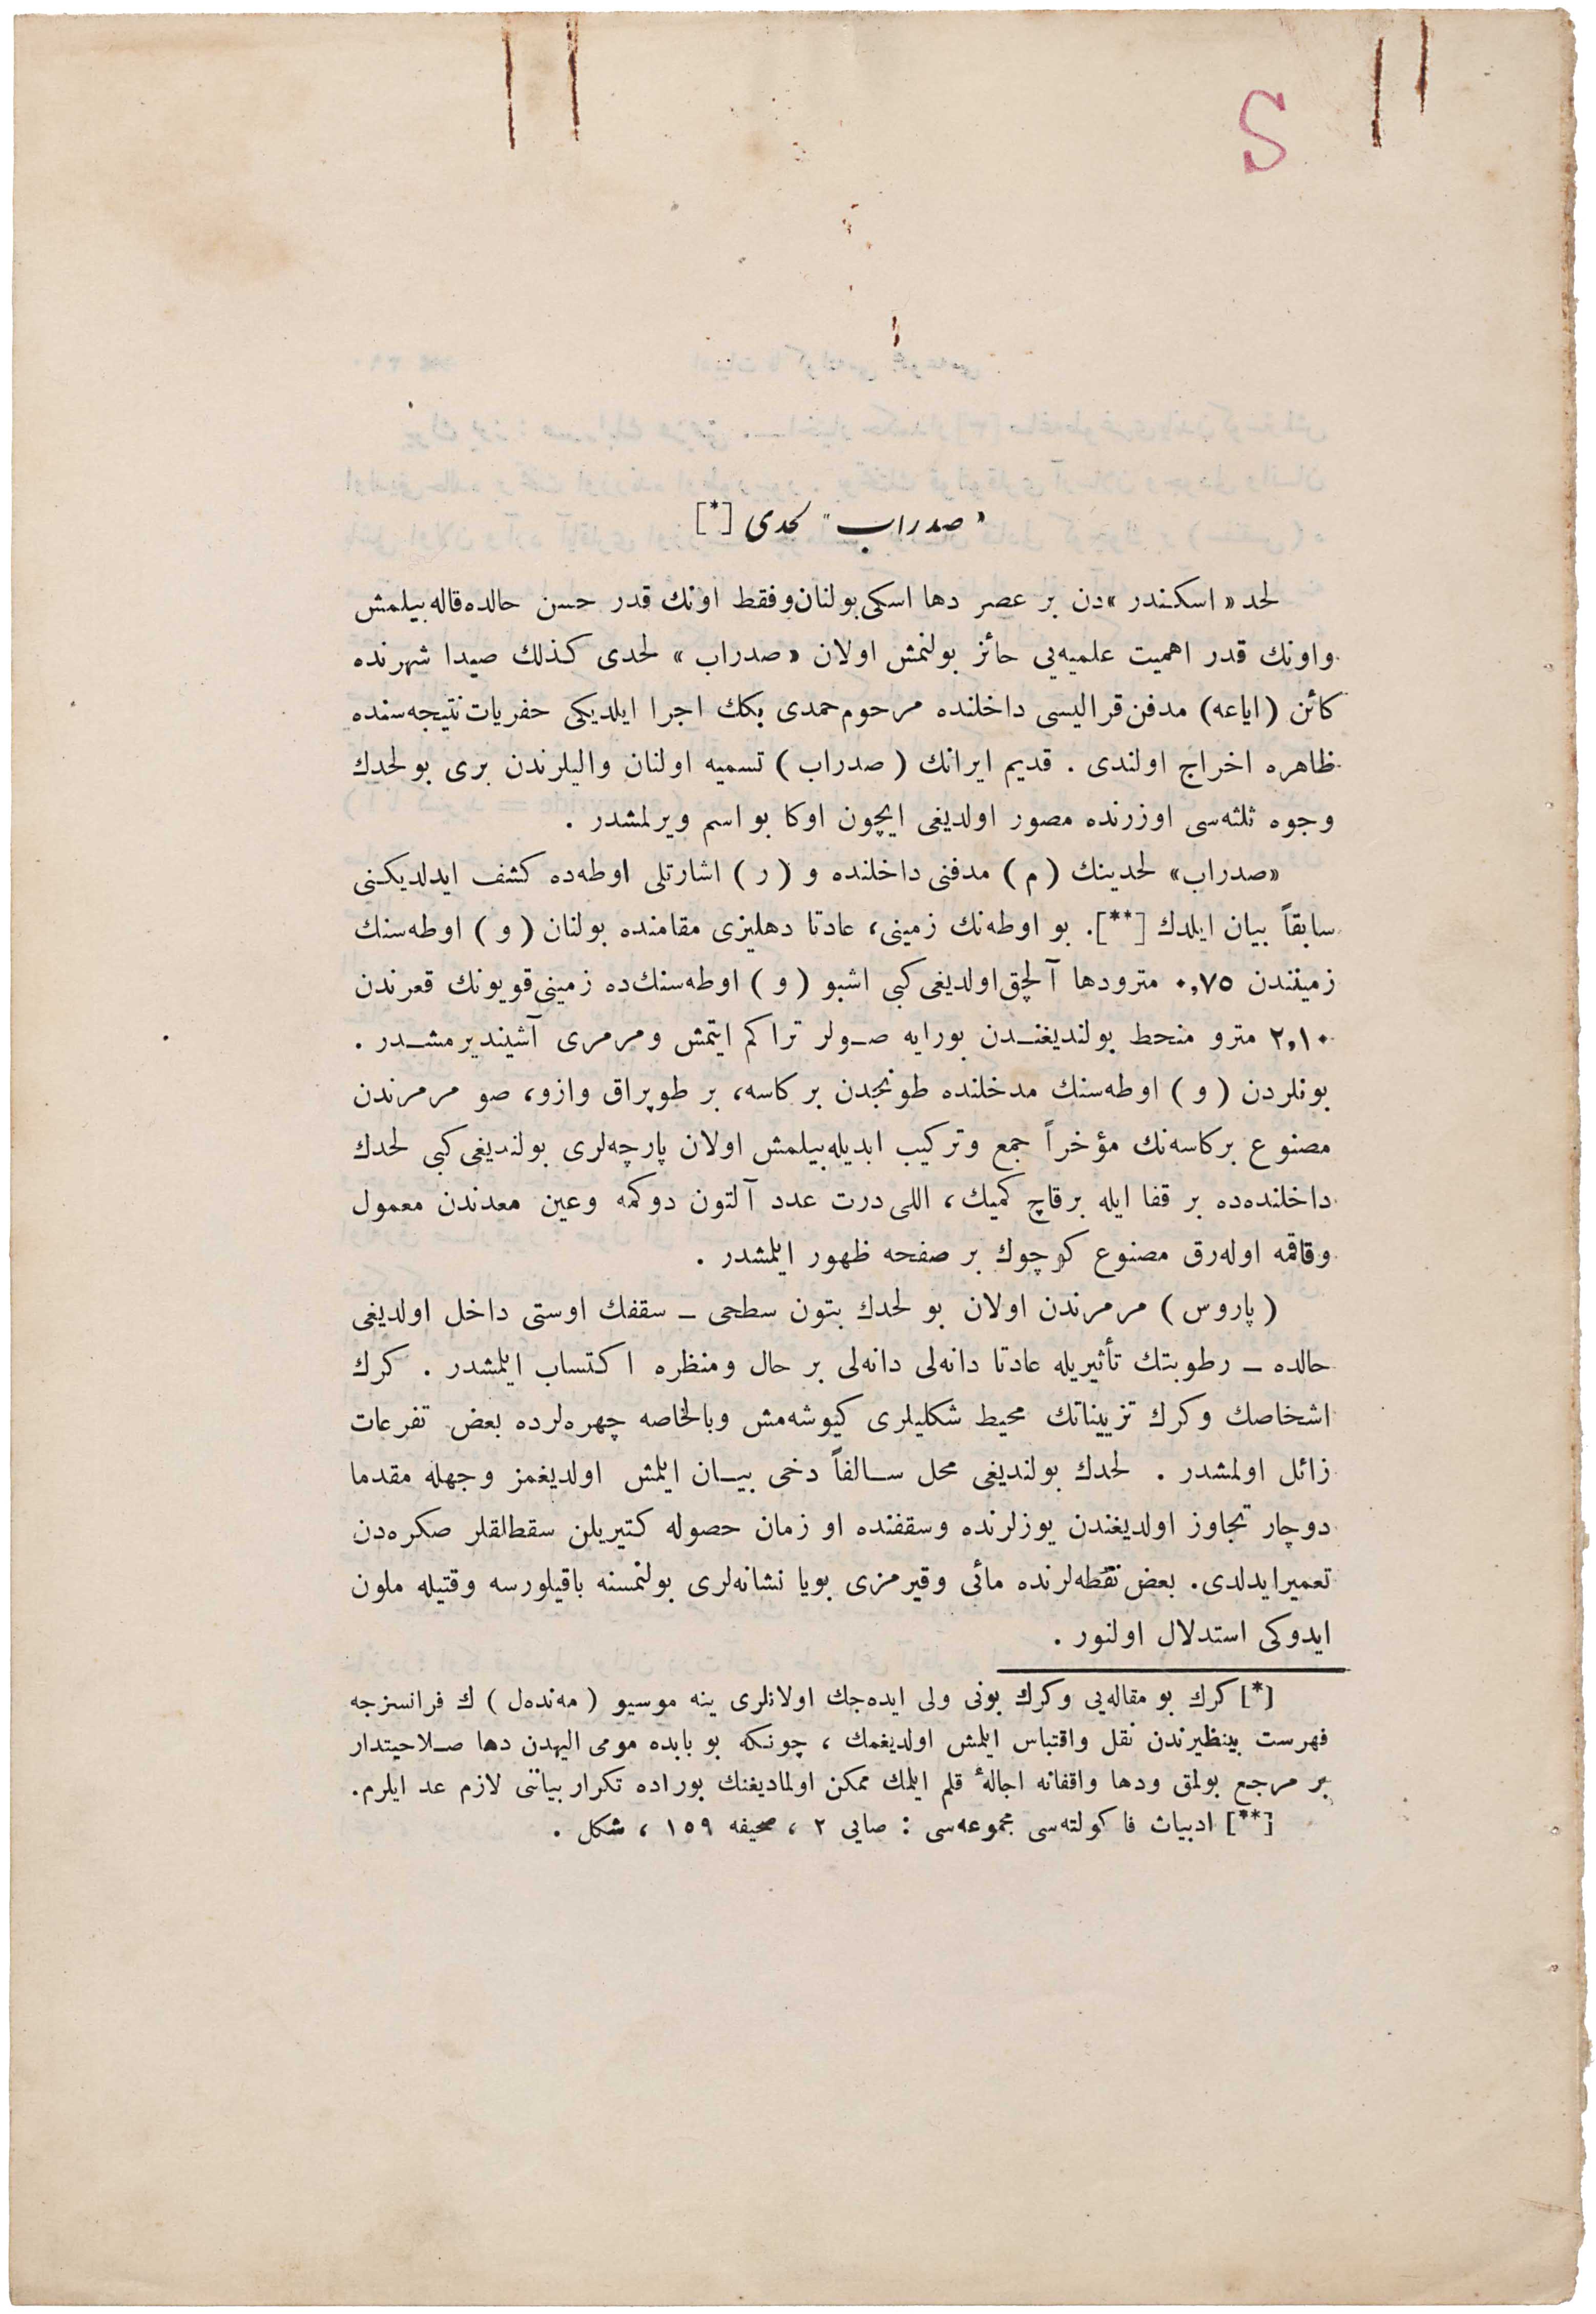 S
« صدراب » لحدی [*]
لحد « اسکندر » دن بر عصر دها اسکی بولنان وفقط اونك قدر حسن حالده قاله بیلمش
واونك قدر اهمیت علمیه‌یی حائز بولنمش اولان « صدراب » لحدی کذلك صیدا شهرنده
کائن (ایاعه) مدفن قرالیسی داخلنده مرحوم حمدی بكك اجرا ایلدیکی حفریات نتیجه‌سنده
ظاهره اخراج اولندی . قدیم ایرانك ( صدراب ) تسمیه اولنان والیلرندن بری بو لحدك
وجوه ثلثه‌سی اوزرنده مصور اولدیغی ایچون اوکا بو اسم ویرلمشدر .
«صدراب» لحدینك ( م ) مدفنی داخلنده و ( ر ) اشارتلی اوطه‌ده کشف ایدلدیکنی
سابقاً بیان ایلدك [**]. بو اوطه‌نك زمینی، عادتا دهلیزی مقامنده بولنان ( و ) اوطه‌سنك
زمیننندن ۰,۷۵ مترو دها آلچق اولدیغی کبی اشبو ( و ) اوطه‌سنك ده زمینی قویونك قعرندن
۲,۱۰ مترو منحط بولندیغنـدن بورایه صـولر تراکم ایتمش ومرمری آشیندیرمشـدر .
بونلردن ( و ) اوطه‌سنك مدخلنده طونجدن بر کاسه، بر طوپراق وازو، صو مرمرندن
مصنوع برکاسه‌نك مؤخراً جمع وترکیب ایدیله‌بیلمش اولان پارچه‌لری بولندیغی کبی لحدك
داخلنده‌ده بر قفا ایله برقاچ کمیك، اللی درت عدد آلتون دوکمه وعین معدندن معمول
وقاقمه اوله‌رق مصنوع کوچوك بر صفحه ظهور ایلمشدر .
( پاروس ) مرمرندن اولان بو لحدك بتون سطحی ـ سقفك اوستی داخل اولدیغی
حالده ـ رطوبتك تأثیریله عادتا دانه‌لی دانه‌لی بر حال ومنظره اکتساب ایلمشدر . کرك
اشخاصك وکرك تزییناتك محیط شکلیلری کیوشه‌مش وبالخاصه چهره‌لرده بعض تفرعات
زائل اولمشدر . لحدك بولندیغی محل سـالفاً دخی بیـان ایلمش اولدیغمز وجهله مقدما
دوچار تجاوز اولدیغندن یوزلرنده وسقفنده او زمان حصوله کتیریلن سقطلقلر صکره‌دن
تعمیر ایدلدی. بعض نقطه‌لرنده مائی وقیرمزی بویا نشانه‌لری بولنمسنه باقیلورسه وقتیله ملون
ایدوکی استدلال اولنور .
[*] کرك بو مقاله‌یی وکرك بونی ولی ایده‌جك اولانلری ینه موسیو ( مه‌نده‌ل ) ك فرانسزجه
فهرست بینظیرندن نقل واقتباس ایلمش اولدیغمك ، چونکه بو بابده مومی الیهدن دها صـلاحیتدار
بر مرجع بولمق ودها واقفانه اجالهٔ قلم ایلمك ممکن اولمادیغنك بوراده تکرار بیاننی لازم عد ایلرم.
[**] ادبیات فاکولته‌سی مجموعه‌سی : صایی ۲ ، صحیفه ۱۵۹ ، شکل .